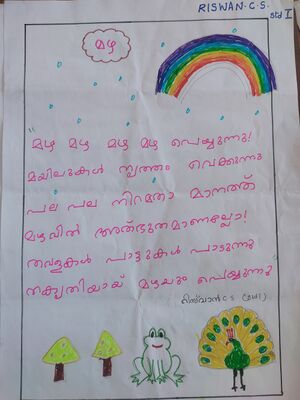 RISWAN.C.S.
std I
മഴ
"മഴ മഴ മഴ മഴ പെയ്യുന്നു!
മയിലുകൾ നൃത്തം വെക്കുന്നു
പല പല നിറമതാ മാനത്ത്
മഴവിൽ അത്ഭുതമാണല്ലോ!
തവളകൾ പാട്ടുകൾ പാടുന്നു
മഴയും പെയ്യുന്നു
റിസ്‌വാൻ C S